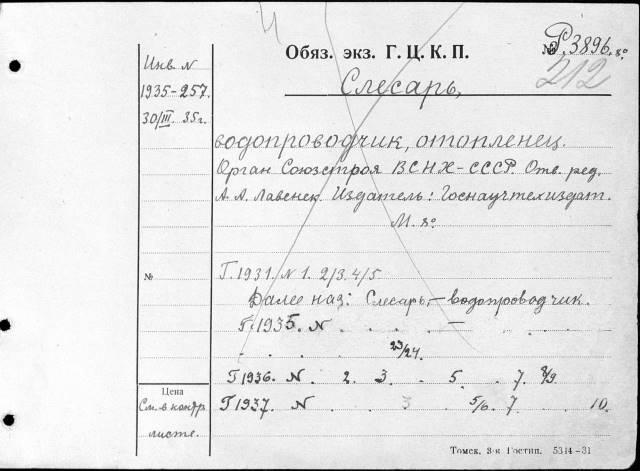 Обяз. экз. Г. Ц. К. П.
№ Р.3896. 8º
212
Инв N
1935-257.
30/III. 35г.
Слесарь,
водопроводчик, отопленец.
Орган Союзстроя ВСНХ-СССР. Отв. ред.
А. А. Лавенек. Издатель: Госнаучтехиздат.
М. 8º
№
Г. 1931. N 1. 2/3. 4/5
Далее наз: Слесарь-водопроводчик.
Г. 1935. N . . . — . . .
. . . . 23/24.
Г 1936. N . 2. 3. . 5. . 7. 8/9.
Г 1937. N . . 3 . 5/6. 7 . . 10.
Цена
См. в контр.
листе.
Томск. 3-я Гостип. 5314-31